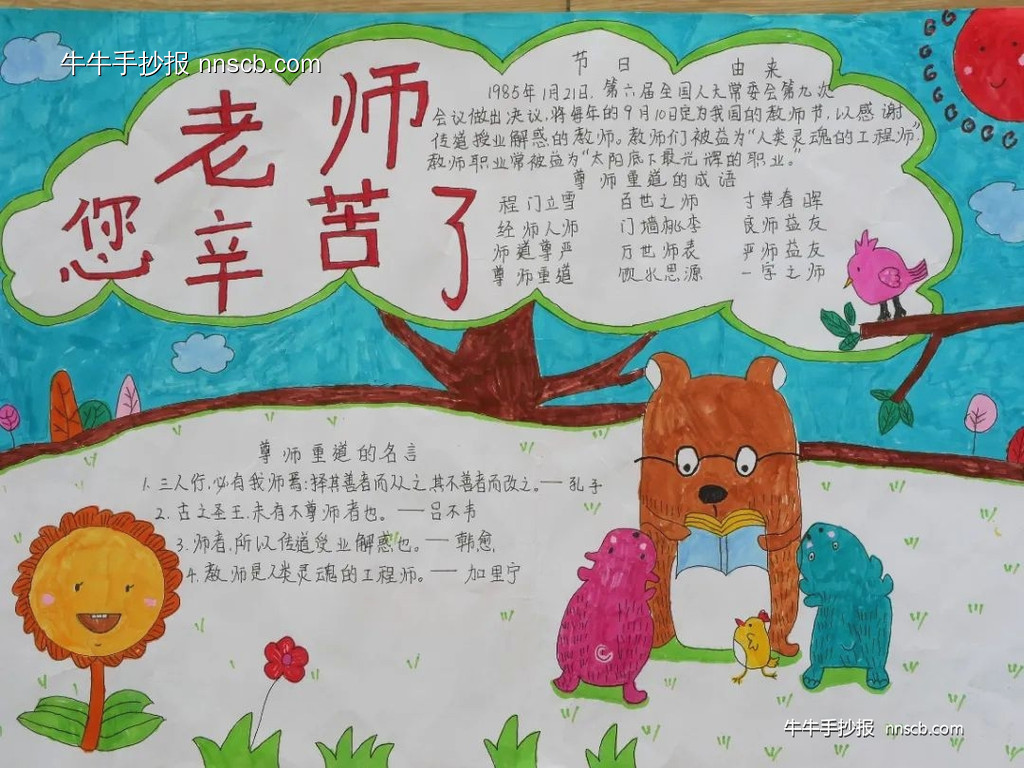 牛牛手抄报 nnscb.com
老师
您辛苦了
节日由来
1985年1月21日,第六届全国人大常委会第九次
会议做出决议,将每年的9月10日定为我国的教师节,以感谢
传道授业解惑的教师。教师们被益为"人类灵魂的工程师",
教师职业常被益为"太阳底下最光辉的职业。"
尊师重道的成语
程门立雪 百世之师 寸草春晖
经师人师 门墙桃李 良师益友
师道尊严 万世师表 严师益友
尊师重道 饮水思源 一字之师
尊师重道的名言
1. 三人行,必有我师焉:择其善者而从之,其不善者而改之。——孔子
2. 古之圣王,未有不尊师者也。——吕不韦
3. 师者,所以传道受业解惑也。——韩愈,
4. 教师是人类灵魂的工程师。——加里宁
牛牛手抄报 nnscb.com